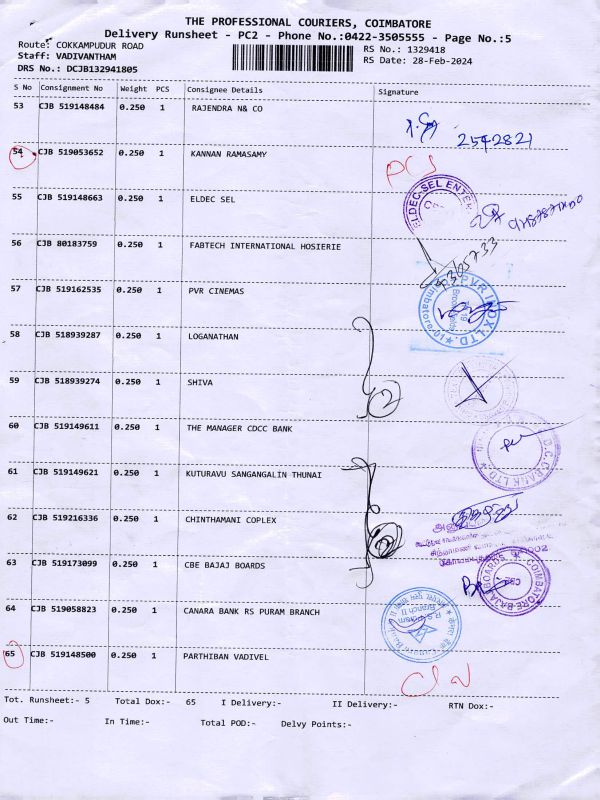 THE PROFESSIONAL COURIERS, COIMBATORE
Delivery Runsheet - PC2 - Phone No.:0422-3505555 - Page No.:5
Route: COKKAMPUDUR ROAD RS No.: 1329418
Staff: VADIVANTHAM RS Date: 28-Feb-2024
DRS No.: DCJB132941805
S No Consignment No Weight PCS Consignee Details Signature
53 CJB 519148484 0.250 1 RAJENDRA N& CO
2542821
54 CJB 519053652 0.250 1 KANNAN RAMASAMY
55 CJB 519148663 0.250 1 ELDEC SEL
ELDEC SEL ENTER
56 CJB 80183759 0.250 1 FABTECH INTERNATIONAL HOSIERIE
57 CJB 519162535 0.250 1 PVR CINEMAS
PVR INOX LTD.
58 CJB 518939287 0.250 1 LOGANATHAN
59 CJB 518939274 0.250 1 SHIVA
2
60 CJB 519149611 0.250 1 THE MANAGER CDCC BANK
BANK LTD
61 CJB 519149621 0.250 1 KUTURAVU SANGANGALIN THUNAI
62 CJB 519216336 0.250 1 CHINTHAMANI COPLEX
2
63 CJB 519173099 0.250 1 CBE BAJAJ BOARDS
BAJAJ BOARDS COIMBATORE
64 CJB 519058823 0.250 1 CANARA BANK RS PURAM BRANCH
65 CJB 519148500 0.250 1 PARTHIBAN VADIVEL
Tot. Runsheet:- 5 Total Dox:- 65 I Delivery:- II Delivery:- RTN Dox:-
Out Time:- In Time:- Total POD:- Delvy Points:-